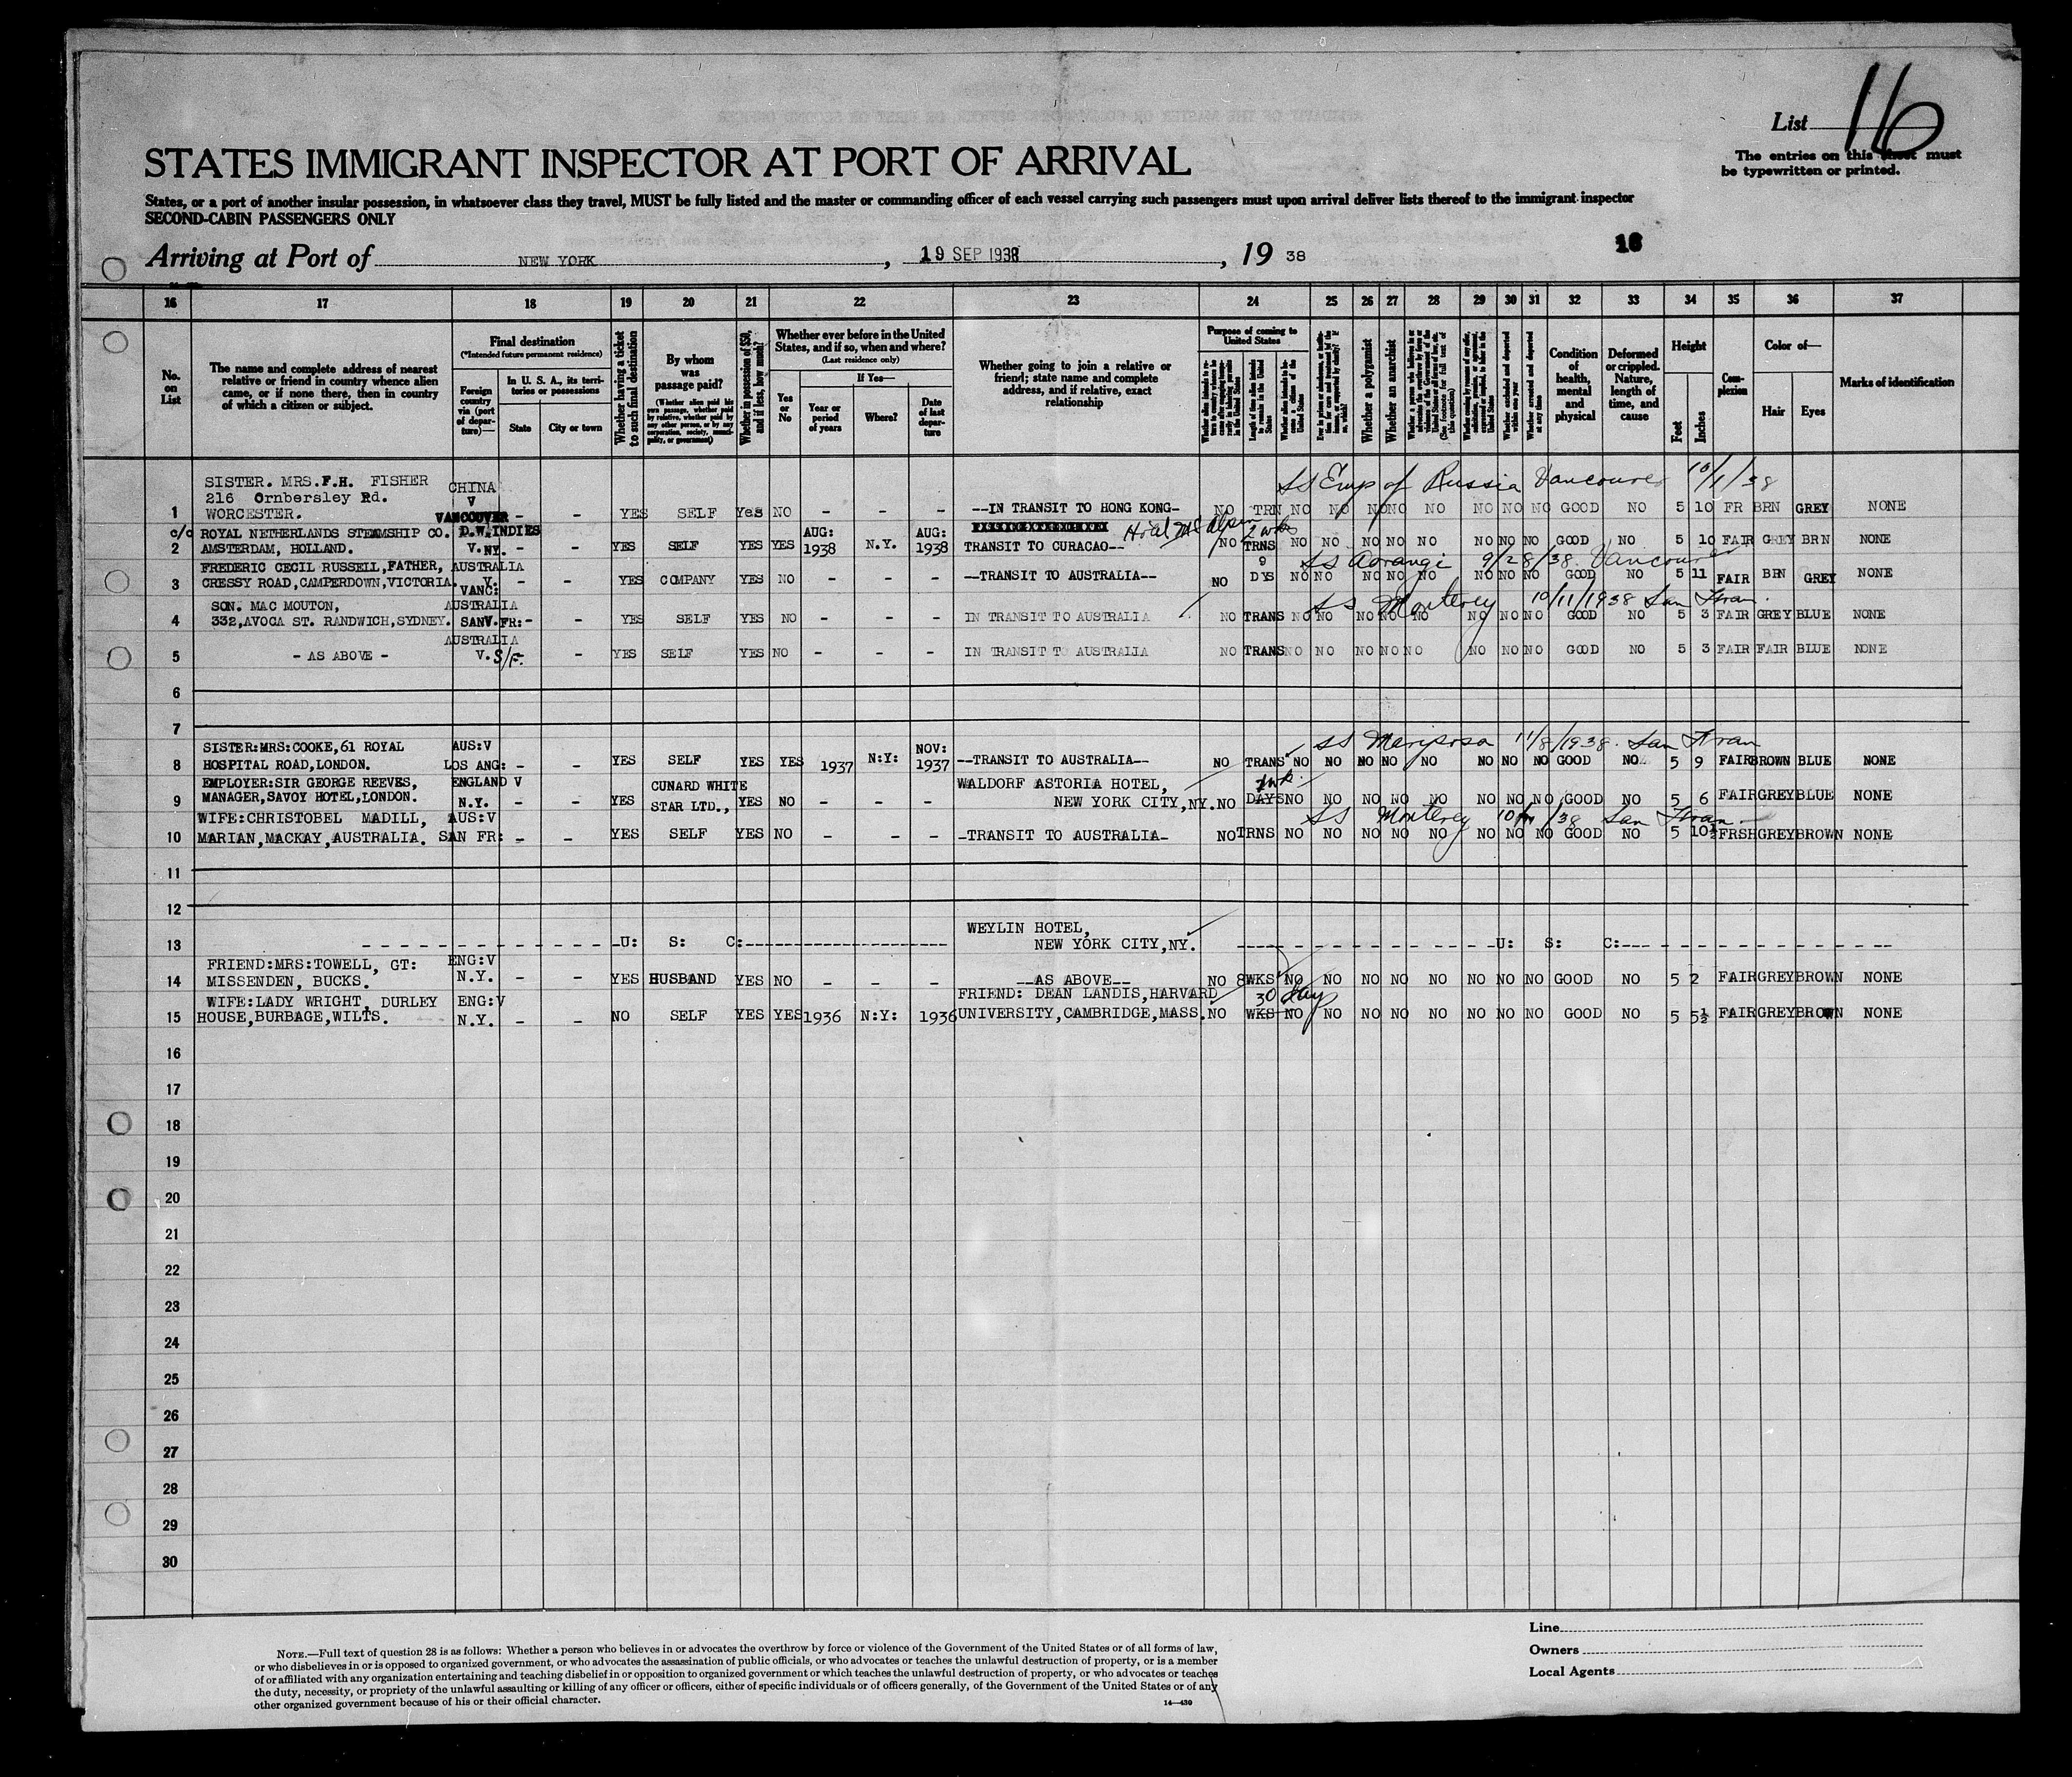 List 16
The entries on this sheet must
be typewritten or printed.
STATES IMMIGRANT INSPECTOR AT PORT OF ARRIVAL
States, or a port of another insular possession, in whatsoever class they travel, MUST be fully listed and the master or commanding officer of each vessel carrying such passengers must upon arrival deliver lists thereof to the immigrant inspector
SECOND-CABIN PASSENGERS ONLY
16
Arriving at Port of NEW YORK, 19 SEP 1938, 19 38
16 17 18 19 20 21 22 23 24 25 26 27 28 29 30 31 32 33 34 35 36 37
No. on List
The name and complete address of nearest relative or friend in country whence alien came, or if none there, then in country of which a citizen or subject.
Final destination
(*Intended future permanent residence)
Foreign country via (port of departure)—
In U. S. A., its territories or possessions
State
City or town
Whether having a ticket to such final destination
By whom was passage paid?
(Whether alien paid his own passage, whether paid by relative, whether paid by any other person, or by any corporation, society, municipality, or government)
Whether in possession of $50, and if less, how much?
Whether ever before in the United States, and if so, when and where?
(Last residence only)
Yes or No
If Yes—
Year or period of years
Where?
Date of last departure
Whether going to join a relative or friend; state name and complete address, and if relative, exact relationship
Purpose of coming to United States
Length of time alien intends to remain in the United States
Whether a polygamist
Whether an anarchist
(See footnote for full text of this question)
Whether excluded and deported within one year
Whether arrested and deported at any time
Condition of health, mental and physical
Deformed or crippled. Nature, length of time, and cause
Height
Feet
Inches
Complexion
Color of—
Hair
Eyes
Marks of identification
SS Emp of Russia Vancouver 10/1/38
SISTER. MRS.F.H. FISHER CHINA
216 Ornbersley Rd. V
1 WORCESTER. VANCOUVER - - YES SELF Yes NO - - - --IN TRANSIT TO HONG KONG- NO TRN NO NO NO NO NO NO NO NO GOOD NO 5 10 FR BRN GREY NONE
c/o ROYAL NETHERLANDS STEAMSHIP CO. D.W.INDIES AUG: AUG: Hotel McAlpin 2 wks
2 AMSTERDAM, HOLLAND. V.NY. - - YES SELF YES YES 1938 N.Y. 1938 TRANSIT TO CURACAO-- NO TRNS NO NO NO NO NO NO NO NO GOOD NO 5 10 FAIR GREY BRN NONE
FREDERIC CECIL RUSSELL,FATHER, AUSTRALIA 9 SS Aorangi 9/28/38 Vancouver
3 CRESSY ROAD,CAMPERDOWN,VICTORIA. V. - - YES COMPANY YES NO - - - --TRANSIT TO AUSTRALIA-- NO DYS NO NO NO NO NO NO NO NO GOOD NO 5 11 FAIR BRN GREY NONE
VANC:
SON. MAC MOUTON, AUSTRALIA SS Monterey 10/11/1938 San Fran.
4 332,AVOCA ST. RANDWICH,SYDNEY. SANV.FR:- - YES SELF YES NO - - - IN TRANSIT TO AUSTRALIA NO TRANS NO NO NO NO NO NO NO NO GOOD NO 5 3 FAIR GREY BLUE NONE
AUSTRALIA
5 - AS ABOVE - V. S/F. - YES SELF YES NO - - - IN TRANSIT T AUSTRALIA NO TRANS NO NO NO NO NO NO NO NO GOOD NO 5 3 FAIR FAIR BLUE NONE
6
7
SISTER:MRS:COOKE,61 ROYAL AUS:V NOV: SS Mariposa 11/8/1938. San Fran
8 HOSPITAL ROAD,LONDON. LOS ANG: - - YES SELF YES YES 1937 N:Y: 1937 --TRANSIT TO AUSTRALIA-- NO TRANS NO NO NO NO NO NO NO NO GOOD NO 5 9 FAIR BROWN BLUE NONE
EMPLOYER:SIR GEORGE REEVES, ENGLAND V CUNARD WHITE WALDORF ASTORIA HOTEL,
9 MANAGER,SAVOY HOTEL,LONDON. N.Y. - - YES STAR LTD., YES NO - - - NEW YORK CITY,NY. NO DAYS NO NO NO NO NO NO NO NO GOOD NO 5 6 FAIR GREY BLUE NONE
WIFE:CHRISTOBEL MADILL, AUS:V SS Monterey San Fran.
10 MARIAN,MACKAY,AUSTRALIA. SAN FR: - - YES SELF YES NO - - - -TRANSIT TO AUSTRALIA- NO TRNS NO NO NO NO NO NO NO NO GOOD NO 5 10½ FRSH GREY BROWN NONE
11
12
WEYLIN HOTEL,
13 U: S: C: NEW YORK CITY,NY. U: S: C:
FRIEND:MRS:TOWELL, GT: ENG:V
14 MISSENDEN, BUCKS. N.Y. - - YES HUSBAND YES NO - - - --AS ABOVE-- NO 8WKS NO NO NO NO NO NO NO NO GOOD NO 5 2 FAIR GREY BROWN NONE
WIFE:LADY WRIGHT, DURLEY ENG:V FRIEND: DEAN LANDIS,HARVARD 30 days
15 HOUSE,BURBAGE,WILTS. N.Y. - - NO SELF YES YES 1936 N:Y: 1936 UNIVERSITY,CAMBRIDGE,MASS. NO WKS NO NO NO NO NO NO NO NO GOOD NO 5 5½ FAIR GREY BROWN NONE
16
17
18
19
20
21
22
23
24
25
26
27
28
29
30
Line
Owners
Local Agents
NOTE.—Full text of question 28 is as follows: Whether a person who believes in or advocates the overthrow by force or violence of the Government of the United States or of all forms of law,
or who disbelieves in or is opposed to organized government, or who advocates the assassination of public officials, or who advocates or teaches the unlawful destruction of property, or is a member
of or affiliated with any organization entertaining and teaching disbelief in or opposition to organized government or which teaches the unlawful destruction of property, or who advocates or teaches
the duty, necessity, or propriety of the unlawful assaulting or killing of any officer or officers, either of specific individuals or of officers generally, of the Government of the United States or of any
other organized government because of his or their official character.
14—430